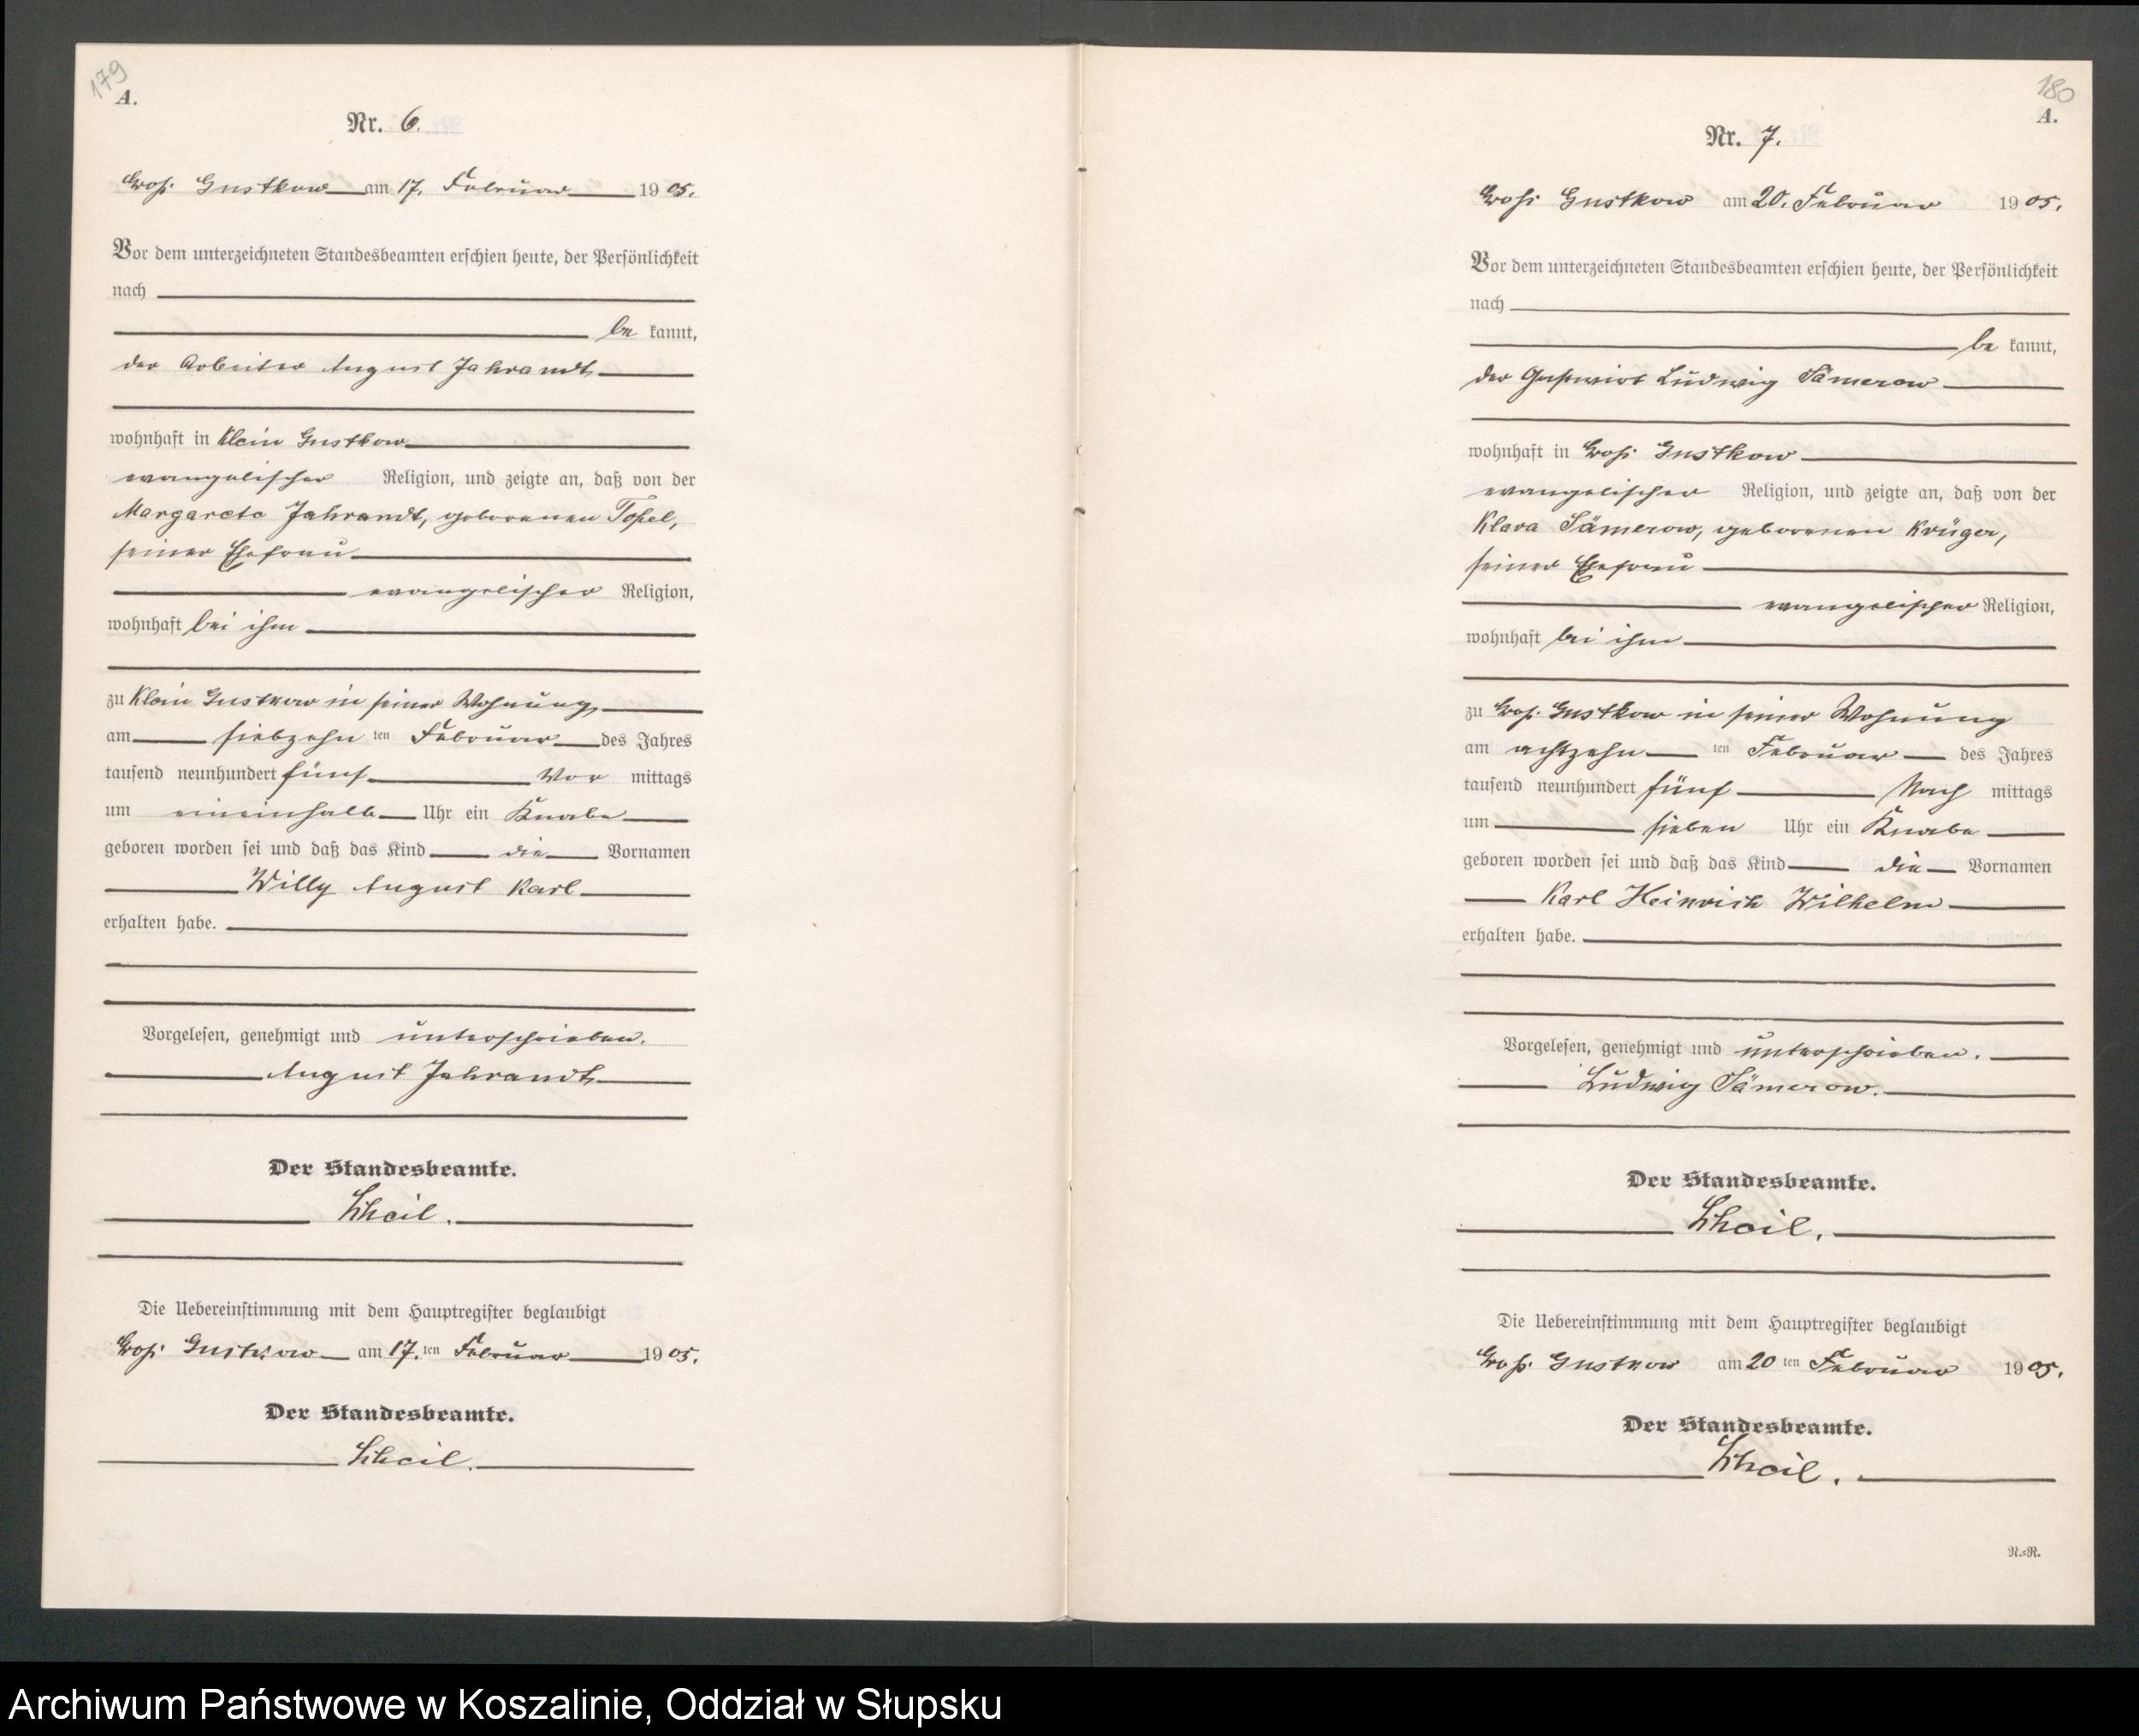 179
A.
Nr. 6.
Groß Gustkow am 17. Februar 1905.
Vor dem unterzeichneten Standesbeamten erschien heute, der Persönlichkeit
nach
be kannt,
der Arbeiter August Jahrandt
wohnhaft in Klein Gustkow
evangelischer Religion, und zeigte an, daß von der
Margarete Jahrandt, geborenen Topel,
seiner Ehefrau
evangelischer Religion,
wohnhaft bei ihm
zu Klein Gustkow in seiner Wohnung
am siebzehn ten Februar des Jahres
tausend neunhundert fünf Vor mittags
um eineinhalb Uhr ein Knabe
geboren worden sei und daß das Kind die Vornamen
Willy August Karl
erhalten habe.
Vorgelesen, genehmigt und unterschrieben.
August Jahrandt
Der Standesbeamte.
Die Uebereinstimmung mit dem Hauptregister beglaubigt
Groß Gustkow am 17. ten Februar 1905.
Der Standesbeamte.
180
A.
Nr. 7.
Groß Gustkow am 20. Februar 1905.
Vor dem unterzeichneten Standesbeamten erschien heute, der Persönlichkeit
nach
be kannt,
der Gastwirt Ludwig Sämerow
wohnhaft in Groß Gustkow
evangelischer Religion, und zeigte an, daß von der
Klara Sämerow, geborenen Krüger,
seiner Ehefrau
evangelischer Religion,
wohnhaft bei ihm
zu Groß Gustkow in seiner Wohnung
am achtzehn ten Februar des Jahres
tausend neunhundert fünf Nach mittags
um sieben Uhr ein Knabe
geboren worden sei und daß das Kind die Vornamen
Karl Heinrich Wilhelm
erhalten habe.
Vorgelesen, genehmigt und unterschrieben.
Ludwig Sämerow.
Der Standesbeamte.
Die Uebereinstimmung mit dem Hauptregister beglaubigt
Groß Gustkow am 20 ten Februar 1905.
Der Standesbeamte.
N.=R.
Archiwum Państwowe w Koszalinie, Oddział w Słupsku